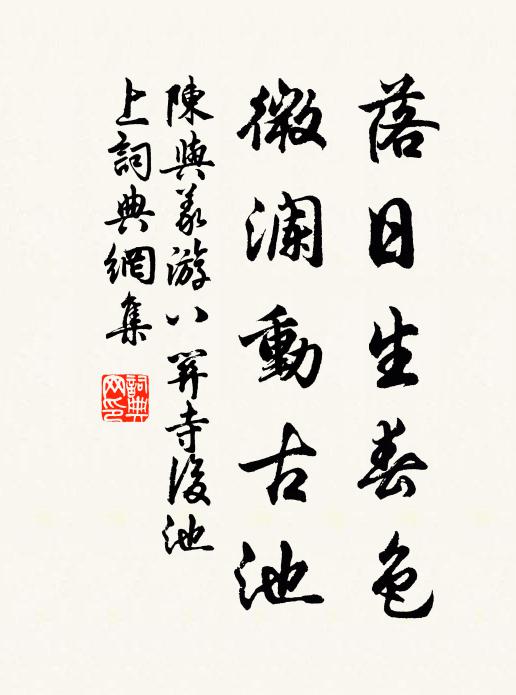 落日生春色
微瀾動古池
陳與義游八關寺後池
上詞典網集
詞典网印